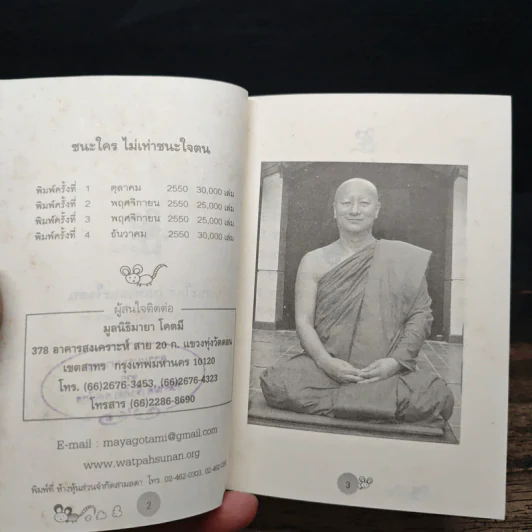 ชนะใคร ไม่เท่าชนะใจตน
พิมพ์ครั้งที่ 1 ตุลาคม 2550 30,000 เล่ม
พิมพ์ครั้งที่ 2 พฤศจิกายน 2550 25,000 เล่ม
พิมพ์ครั้งที่ 3 พฤศจิกายน 2550 25,000 เล่ม
พิมพ์ครั้งที่ 4 ธันวาคม 2550 30,000 เล่ม
ผู้สนใจติดต่อ
มูลนิธิมายา โคตมี
378 อาคารสงเคราะห์ สาย 20 ค. แขวงทุ่งวัดดอน
เขตสาทร กรุงเทพมหานคร 10120
โทร. (66)2676-3453, (66)2676-4323
โทรสาร (66)2286-8690
E-mail : mayagotami@gmail.com
www.watpahsunan.org
พิมพ์ที่ ห้างหุ้นส่วนจำกัดสามลดา โทร. 02-462-0303,
2
3